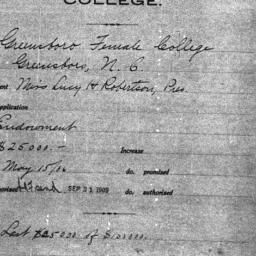 COLLEGE.
Greensboro Female College
Greensboro, N. C
Miss Lucy H Robertson, Pres.
pplication
Endowment
$25000.- Increase
May 15/06 do. promised
SEP 21 1909 do. authorised
Last $25000 of $100000.